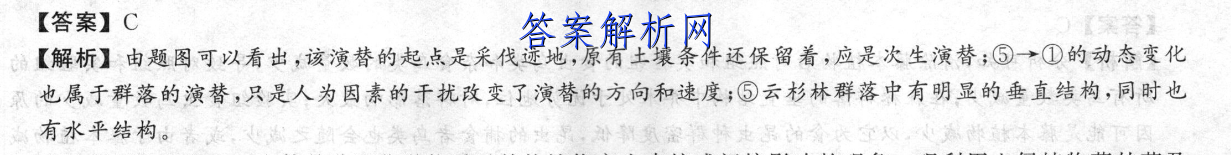 【答案】C
答案解析网
【解析】由题图可以看出,该演替的起点是采伐迹地,原有土壤条件还保留着,应是次生演替;⑤→①的动态变化
也属于群落的演替,只是人为因素的干扰改变了演替的方向和速度;⑤云杉林群落中有明显的垂直结构,同时也
有水平结构。